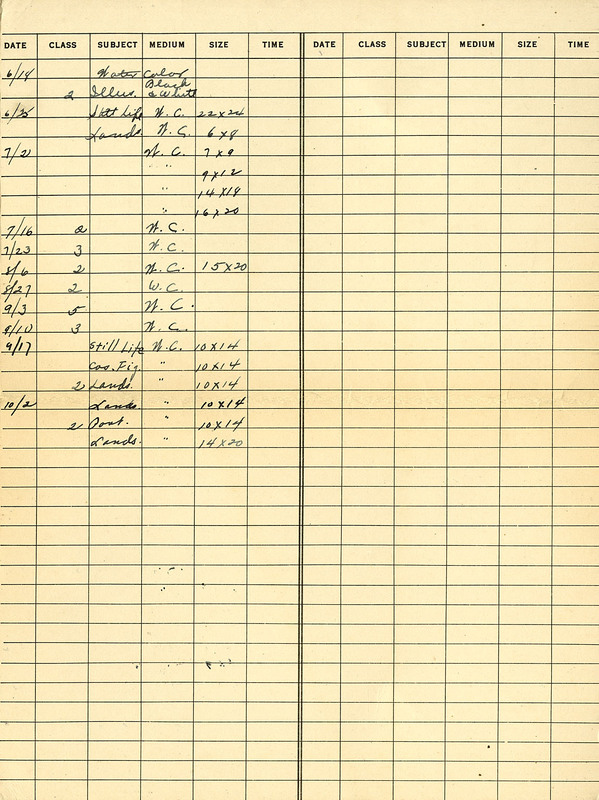 DATE CLASS SUBJECT MEDIUM SIZE TIME DATE CLASS SUBJECT MEDIUM SIZE TIME
6/14 Water Color
2 Illus. Black & White
6/25 Still Life W.C. 22x24
Lands. W.C. 6x8
7/2 W.C. 7x9
" " 9x12
" 14x18
" 16x20
7/16 2 W.C.
7/23 3 W.C.
8/6 2 W.C. 15x20
8/27 2 W.C.
9/3 5 W.C.
9/10 3 W.C.
9/17 Still Life W.C. 10x14
Cos. Fig. " 10x14
2 Lands. " 10x14
10/2 Lands. " 10x14
2 Port. " 10x14
Lands. " 14x20